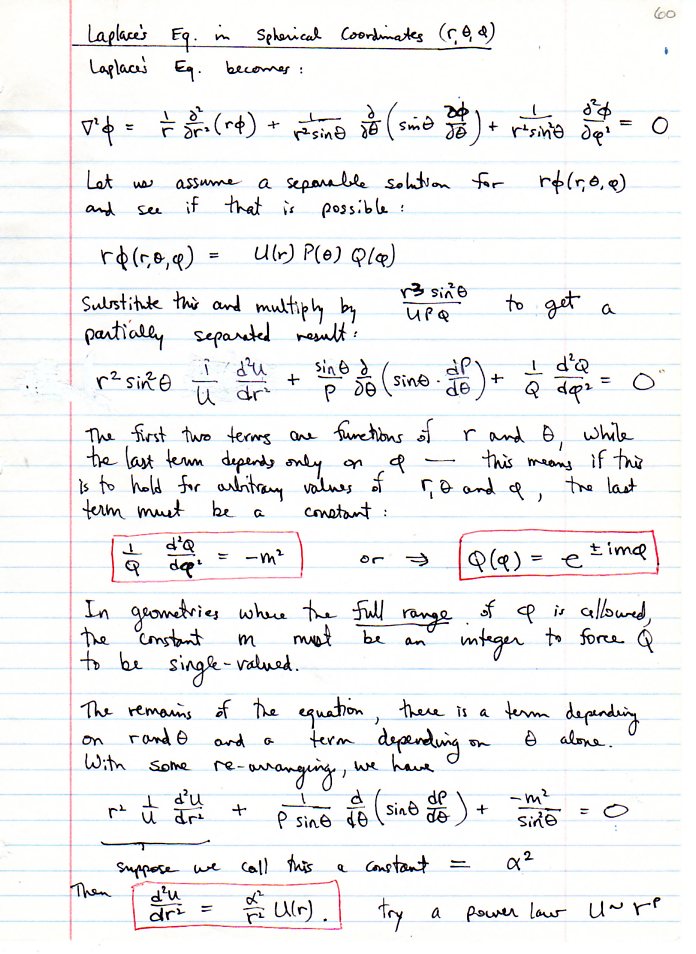 60
Laplace's Eq. in Spherical Coordinates (r, θ, φ)
Laplace's Eq. becomes:
∇²ϕ = 1/r ∂²/∂r² (rϕ) + 1/(r² sinθ) ∂/∂θ (sinθ ∂ϕ/∂θ) + 1/(r² sin²θ) ∂²ϕ/∂φ² = 0
Let us assume a separable solution for rϕ(r, θ, φ)
and see if that is possible:
rϕ(r, θ, φ) = U(r) P(θ) Q(φ)
Substitute this and multiply by r³ sin²θ/UPQ to get a
partially separated result:
r² sin²θ 1/U d²U/dr² + sinθ/P ∂/∂θ (sinθ · dP/dθ) + 1/Q d²Q/dφ² = 0
The first two terms are functions of r and θ, while
the last term depends only on φ — this means if this
is to hold for arbitrary values of r, θ and φ, the last
term must be a constant:
1/Q d²Q/dφ² = -m² or ⇒ Q(φ) = e^(±imφ)
In geometries where the full range of φ is allowed,
the constant m must be an integer to force Q
to be single-valued.
The remains of the equation, there is a term depending
on r and θ and a term depending on θ alone.
With some re-arranging, we have
r² 1/U d²U/dr² + 1/(P sinθ) d/dθ (sinθ dP/dθ) + -m²/sin²θ = 0
suppose we call this a constant = α²
Then d²U/dr² = α²/r² U(r). try a power law U ~ r^p